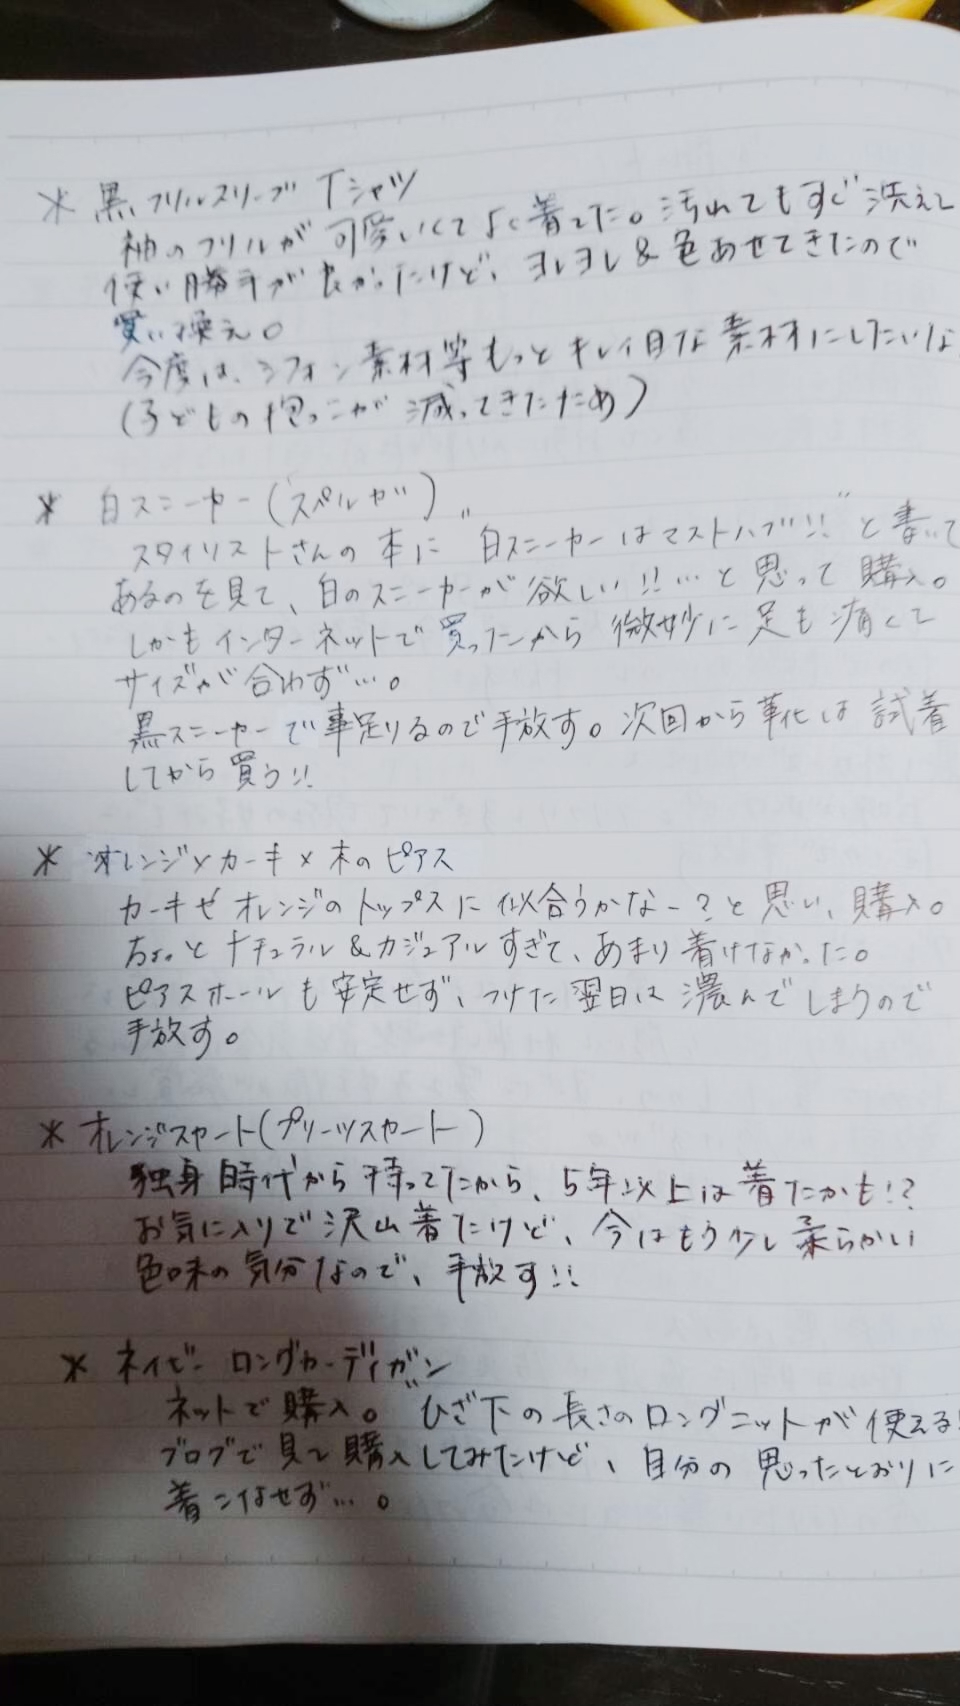 * 黒フリルスリーブTシャツ
袖のフリルが可愛いくてよく着てた。汚れてもすぐ洗えて
使い勝手が良かったけど、ヨレヨレ&色あせてきたので
買い換え。
今度は、シフォン素材等もっとキレイ目な素材にしたいな。
(子どもの抱っこが減ってきたため)
* 白スニーカー(スペルガ)
スタイリストさんの本に"白スニーカーはマストハブ!!"と書いて
あるのを見て、白のスニーカーが欲しい!!…と思って購入。
しかもインターネットで買ったから微妙に足も痛くて
サイズが合わず…。
黒スニーカーで事足りるので手放す。次回から革化は試着
してから買う!!
* オレンジ×カーキ×木のピアス
カーキやオレンジのトップスに似合うかなー?と思い、購入。
ちょっとナチュラル&カジュアルすぎて、あまり着けなかった。
ピアスホールも安定せず、つけた翌日は濃んでしまうので
手放す。
* オレンジスカート(プリーツスカート)
独身時代から持ってたから、5年以上は着たかも!?
お気に入りで沢山着たけど、今はもう少し柔らかい
色味の気分なので、手放す!!
* ネイビーロングカーディガン
ネットで購入。"ひざ下の長さのロングニットが使える!
ブログで見て購入してみたけど、自分の思ったとおりに
着こなせず…。